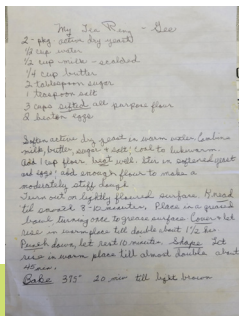 My Tea Ring - Gee
2 - pkg active dry yeast
cup water
1/2 cup - milk - scalded
1/4 cup butter
2 tablespoon sugar
1 teaspoon salt
3 cups sifted all purpose flour
2 beaten eggs
Soften active dry yeast in warm water. Combine
milk, butter, sugar & salt; cool to lukewarm.
Add 1 cup flour, beat well. Stir in softened yeast
and eggs; add enough flour to make a
moderately stiff dough.
Turn out on lightly floured surface. Knead
til smooth 8-10 minutes. Place in a greased
bowl turning once to grease surface. Cover & let
rise in warm place till double about 1 1/2 hr.
Punch down, let rest 10 minutes. Shape. Let
rise in warm place till almost double about
45 min.
Bake 375° 20 min till light brown